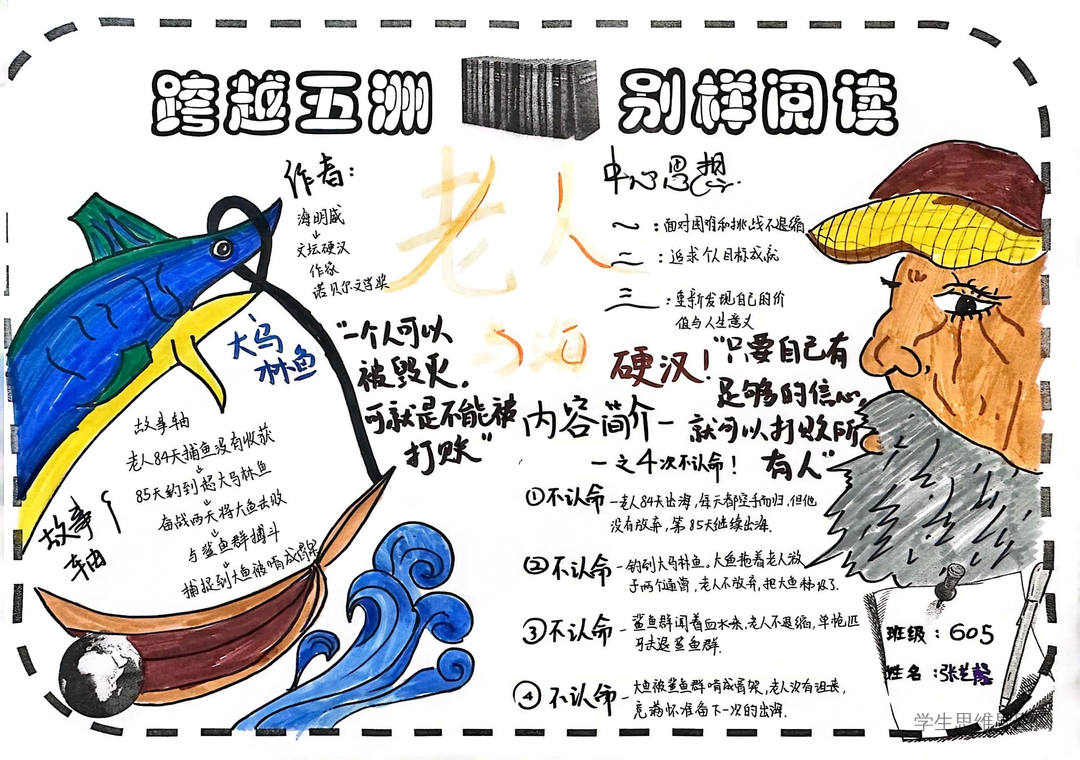 跨越五洲 别样阅读
老人
与海
作者:
海明威
文坛硬汉
作家
诺贝尔文学奖
中心思想
一:面对困难和挑战不退缩
二:追求个人目标成就
三:重新发现自己的价
值与人生意义
大马
林鱼
"一个人可以
被毁灭。
可就是不能被
打败"
硬汉!
"只要自己有
足够的信心,
就可以打败所
有人"
故事
轴
故事轴
老人84天捕鱼没有收获
85天钓到起大马林鱼
奋战两天将大鱼击败
与鲨鱼群搏斗
捕捉到大鱼被啃成骨架
内容简介一
一之4次不认命!
①不认命-老人84天出海,每天都空手而归,但他
没有放弃,第85天继续出海.
②不认命-钓到大马林鱼。大鱼拖着老人游
老人不放弃,把大鱼
③不认命-鲨鱼群闻着血水来,老人不退缩,单枪匹
鲨鱼群.
④不认命-大鱼被鲨鱼群啃成骨架,老人没有沮丧,
准备下一次的出海.
班级:605
姓名:张
学生思维